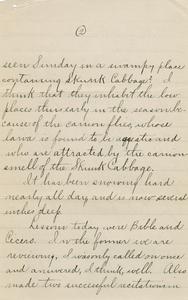 ②
seen Sunday in a swampy place
containing Skunk Cabbage? I
think that they inhabit the low
places thus early in the season be-
cause of the carrion flies, whose
larva is found to be aquatic and
who are attracted by the carrion
smell of the Skunk Cabbage.
It has been snowing hard
nearly all day and is now several
inches deep.
Lessons today were Bible and
Cicero. In the former we are
reviewing, I was only called on once
and answered, I think, well. Also
made two successful recitations in